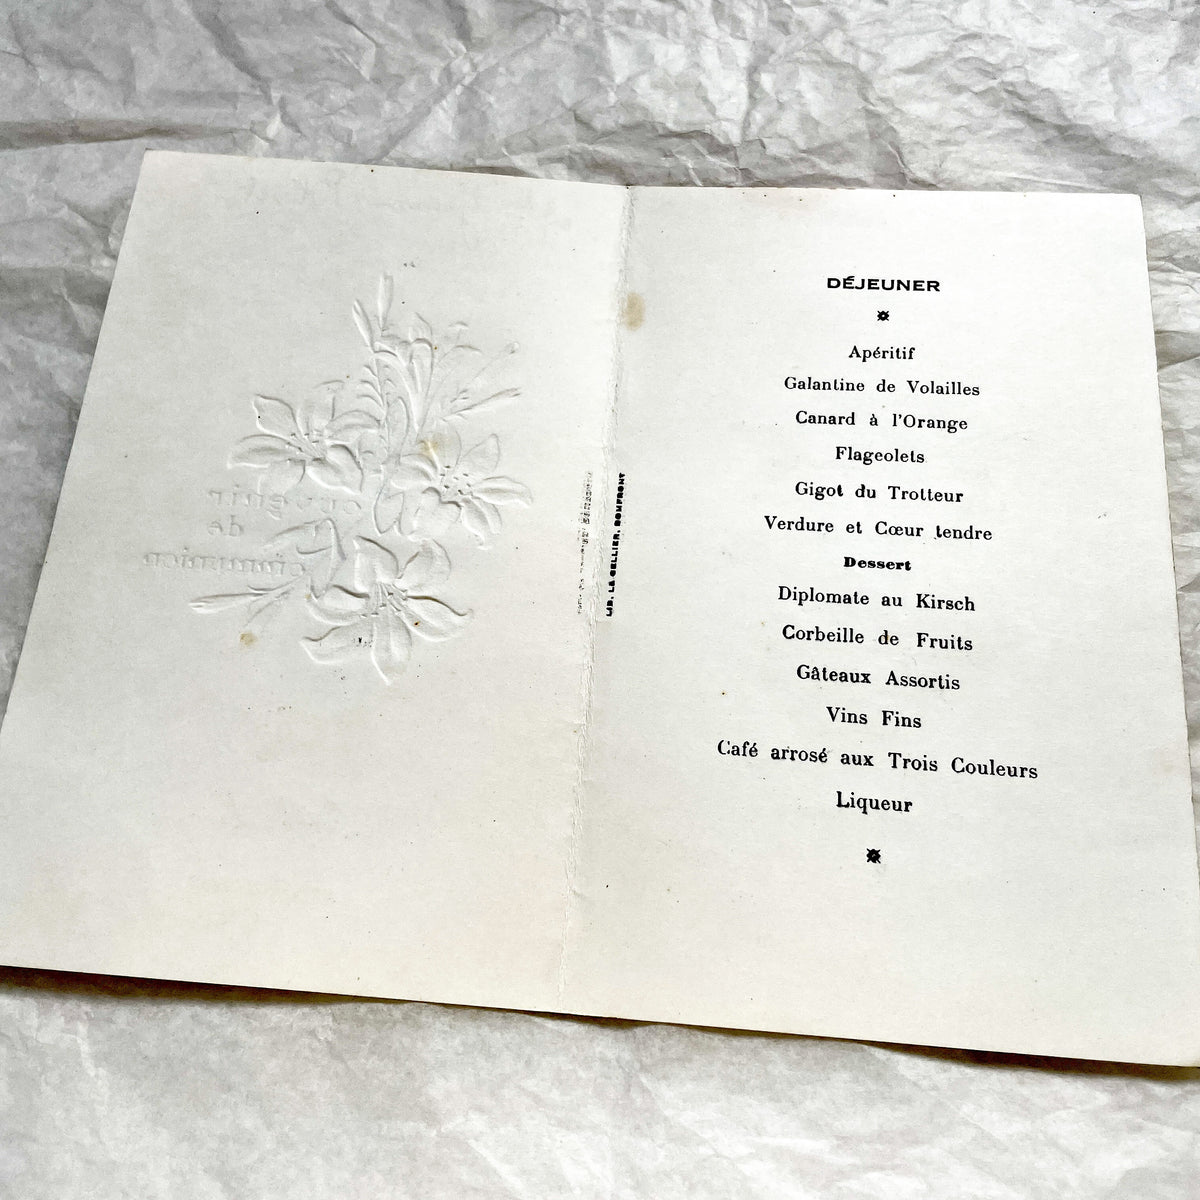 Souvenir
de
Communion
LIB. LE GELLIER, DOMFRONT
DÉJEUNER
Apéritif
Galantine de Volailles
Canard à l'Orange
Flageolets
Gigot du Trotteur
Verdure et Cœur tendre
Dessert
Diplomate au Kirsch
Corbeille de Fruits
Gâteaux Assortis
Vins Fins
Café arrosé aux Trois Couleurs
Liqueur